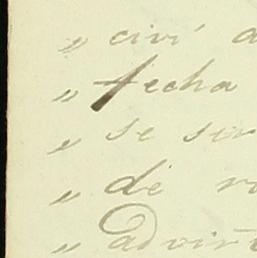 „ civi a
„ fecha
„ se sir
„ de r
„ advir